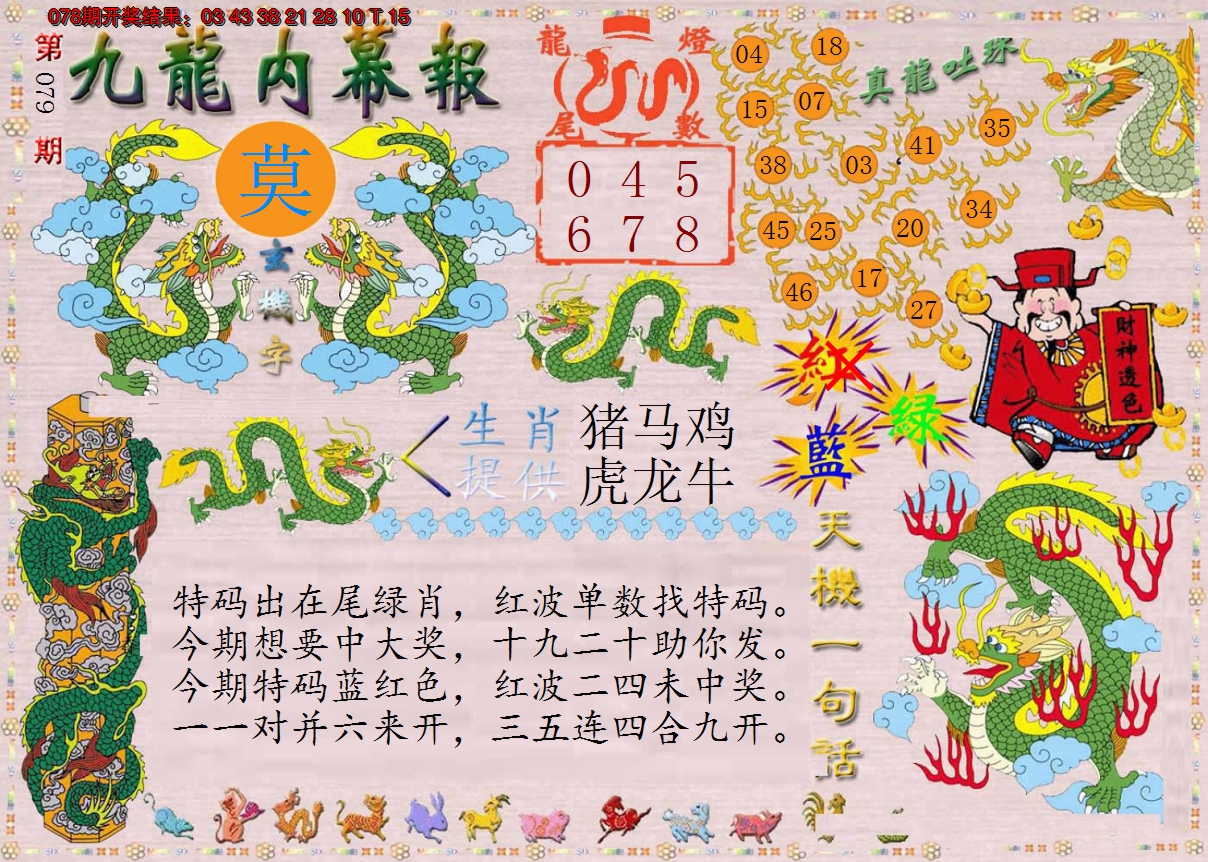 078期开奖结果：03 43 38 21 28 10 T 15
第079期
九龍内幕報
莫
玄機字
龍燈
尾數
0 4 5
6 7 8
真龍吐珠
04
18
15
07
38
03
41
35
45
25
20
34
46
17
27
財神透色
紅
綠
藍
生肖 猪马鸡
提供 虎龙牛
天機一句话
特码出在尾绿肖，红波单数找特码。
今期想要中大奖，十九二十助你发。
今期特码蓝红色，红波二四未中奖。
一一对并六来开，三五连四合九开。